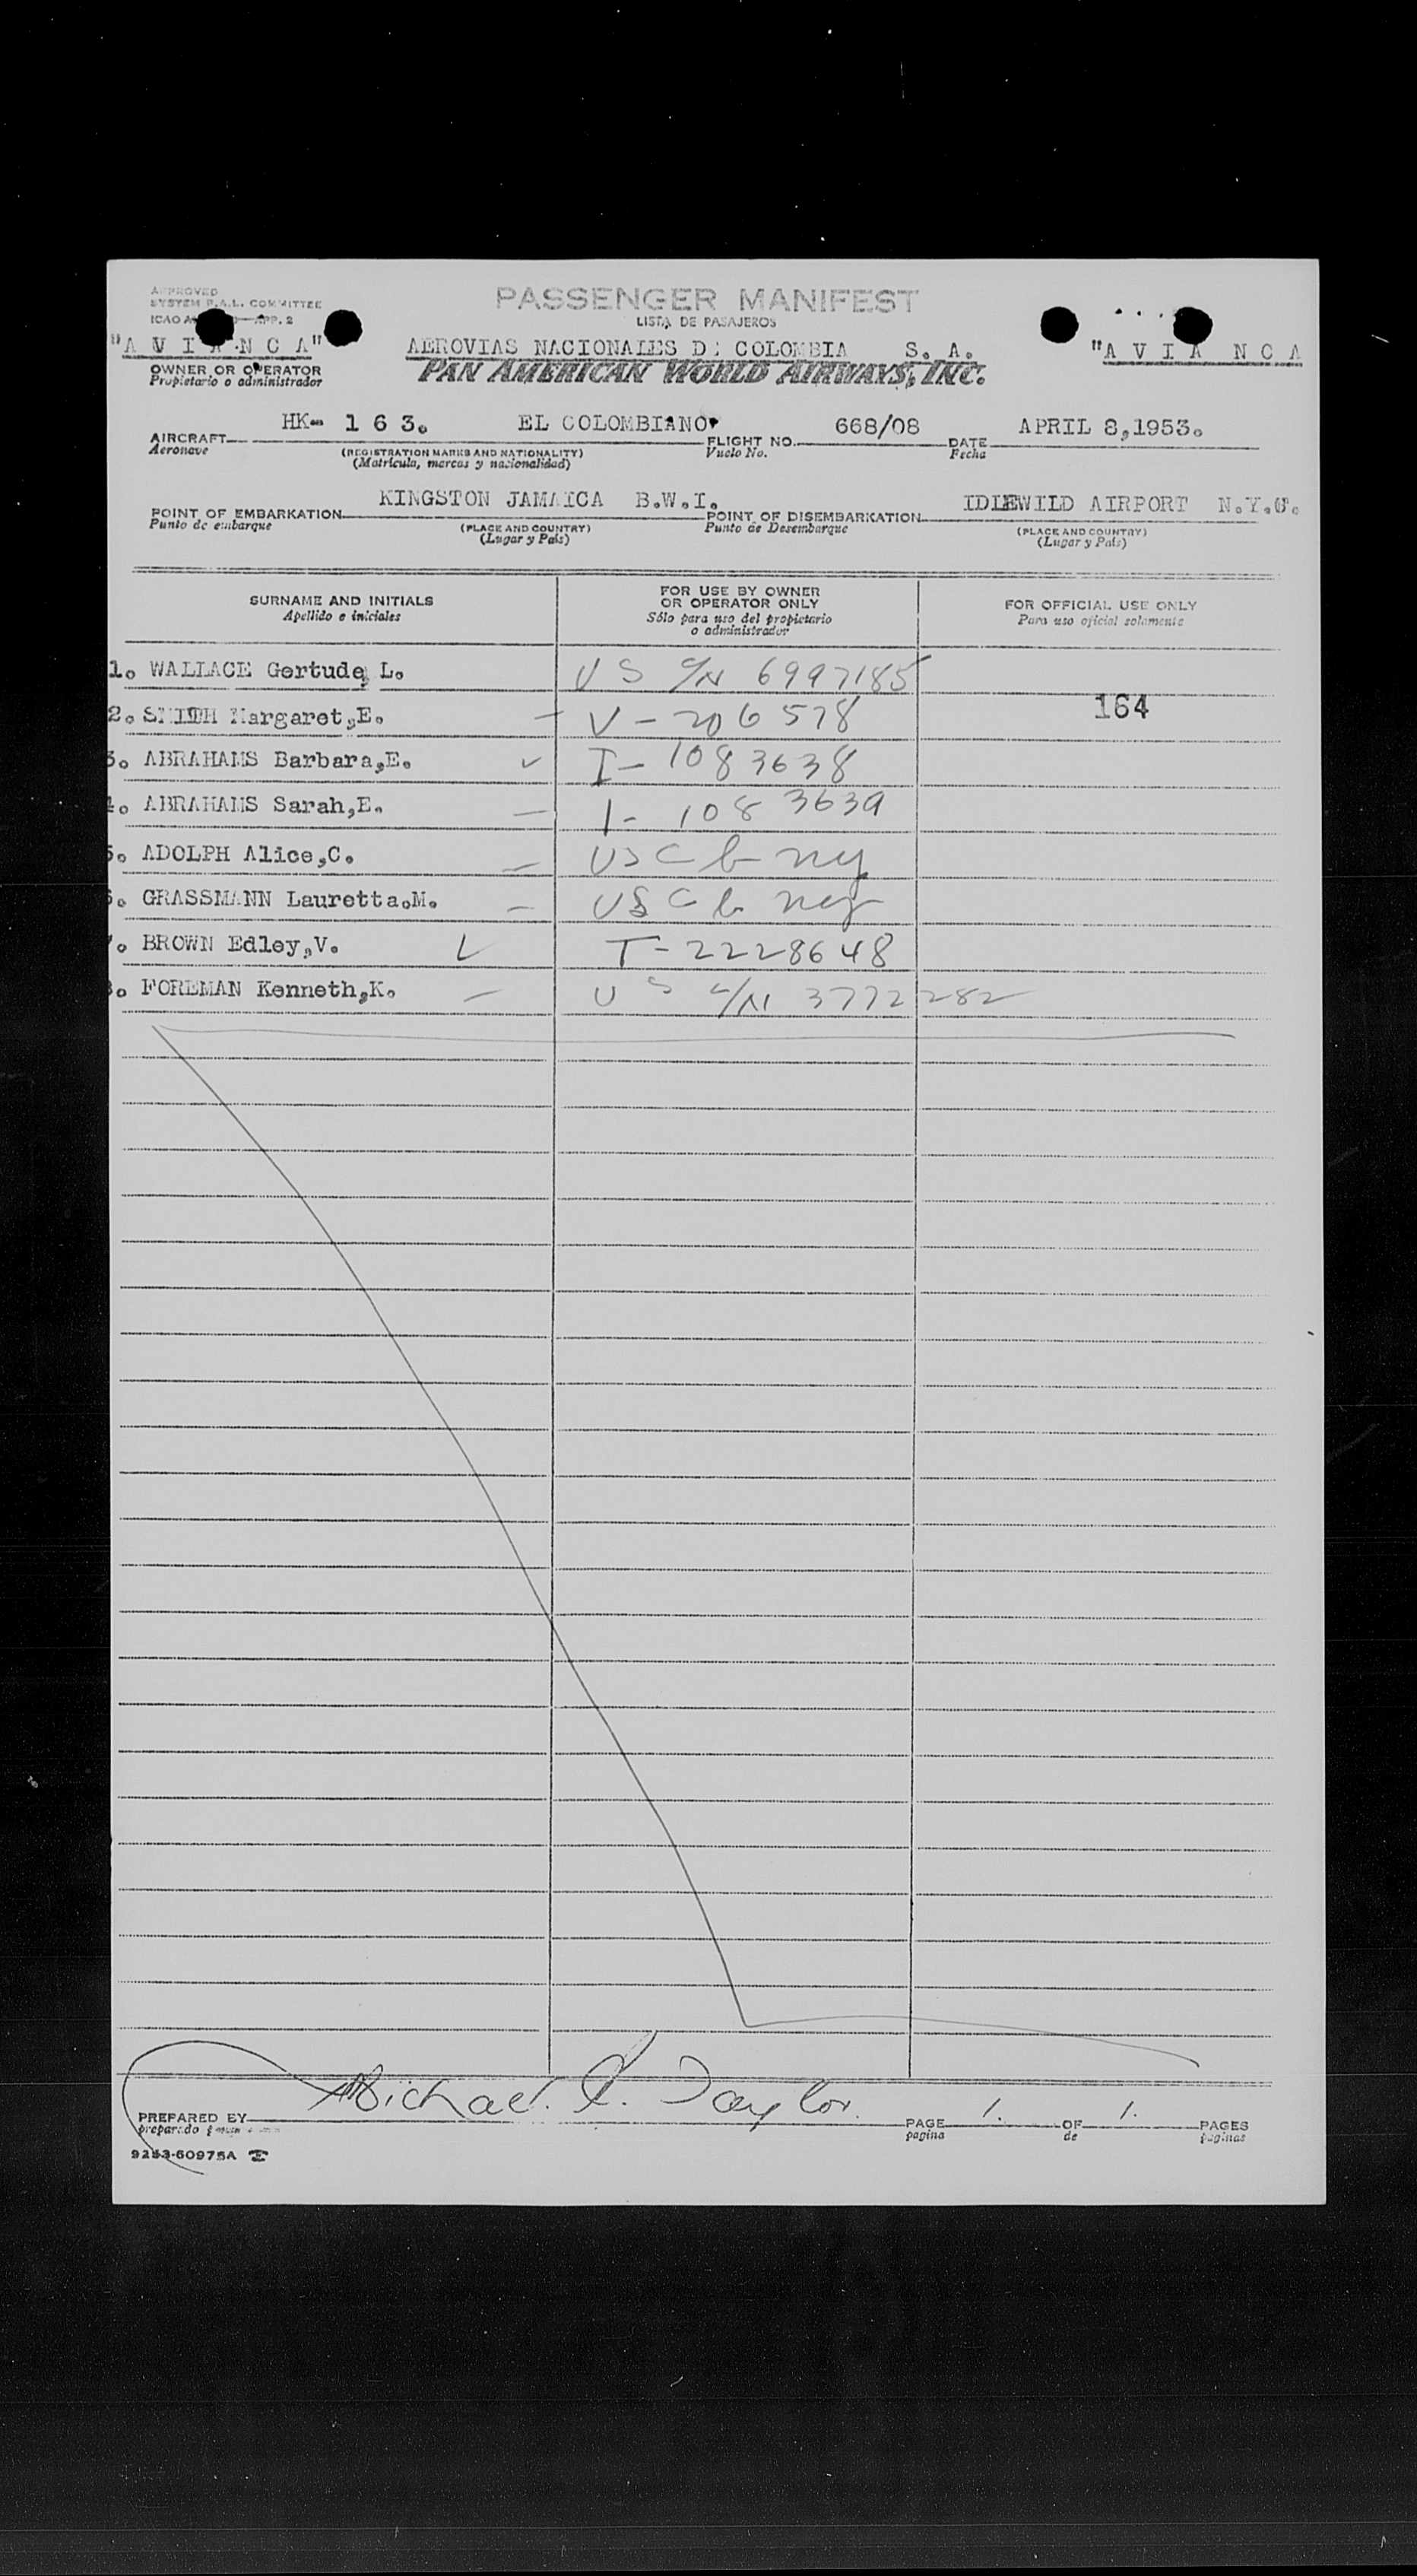 APPROVED
SYSTEM P.A.L. COMMITTEE
ICAO APP. 2
PASSENGER MANIFEST
LISTA DE PASAJEROS
"A V I A N C A"
AEROVIAS NACIONALES DE COLOMBIA S. A.
"A V I A N C A
OWNER OR OPERATOR
Propietario o administrador
PAN AMERICAN WORLD AIRWAYS, INC.
HK- 1 6 3. EL COLOMBIANO 668/08 APRIL 8,1953.
AIRCRAFT FLIGHT NO. DATE
Aeronave (REGISTRATION MARKS AND NATIONALITY) Vuelo No. Fecha
(Matrícula, marcas y nacionalidad)
KINGSTON JAMAICA B.W.I. IDLEWILD AIRPORT N.Y.C.
POINT OF EMBARKATION POINT OF DISEMBARKATION
Punto de embarque (PLACE AND COUNTRY) Punto de Desembarque (PLACE AND COUNTRY)
(Lugar y País) (Lugar y País)
SURNAME AND INITIALS
Apellido e iniciales
FOR USE BY OWNER
OR OPERATOR ONLY
Sólo para uso del propietario
o administrador
FOR OFFICIAL USE ONLY
Para uso oficial solamente
1. WALLACE Gertude, L. US C/N 6997185
2. SMITH Margaret,E. V-206578 164
3. ABRAHAMS Barbara,E. I-1083638
4. ABRAHAMS Sarah,E. I-1083639
5. ADOLPH Alice,C. USC b ny
6. GRASSMANN Lauretta.M. USC b ny
. BROWN Edley,V. T-2228648
. FOREMAN Kenneth,K. US C/N 3772282
Michael. Taylor.
PREPARED BY PAGE 1. OF 1. PAGES
preparado página de páginas
9253-60975A